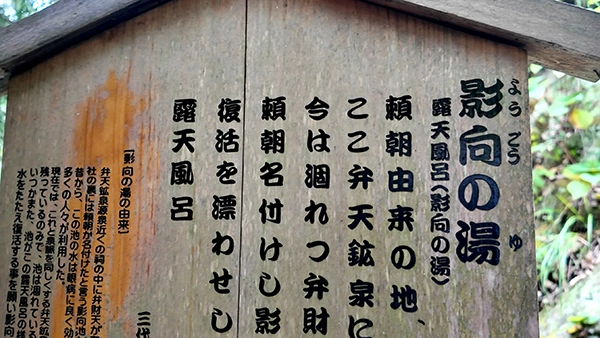 影向の湯
ようごうゆ
露天風呂(影向の湯)
頼朝由来の地、
ここ弁天鉱泉に
今は涸れつ弁財
頼朝名付けし影
復活を漂わせし
露天風呂
三代
(影向の湯の由来)
弁天鉱泉源泉近くの祠の中に弁財天が
社の裏には頼朝が名付けたと言う影向池
昔から、この池の水は眼病に良く効
多くの人々が利用した。
現在では、これと泉脈を同しくする弁天鉱
残っているので、池は涸れている
いつかまた、池がこの露天風呂の様
水をたたえ復活する事を願い影向